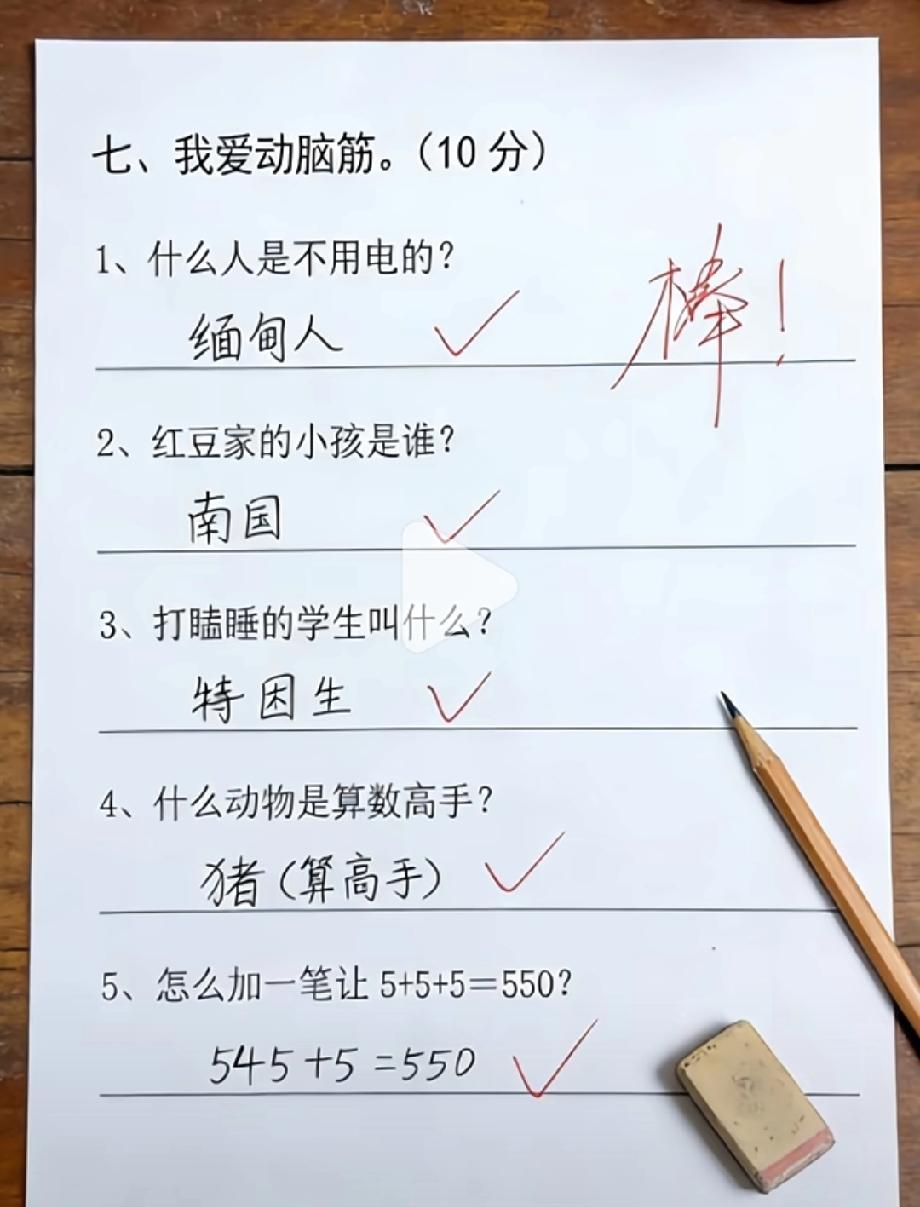 七、我爱动脑筋。（10 分）
1、什么人是不用电的？
缅甸人
棒！
2、红豆家的小孩是谁？
南国
3、打瞌睡的学生叫什么？
特困生
4、什么动物是算数高手？
猪（算高手）
5、怎么加一笔让 5+5+5＝550？
545+5=550